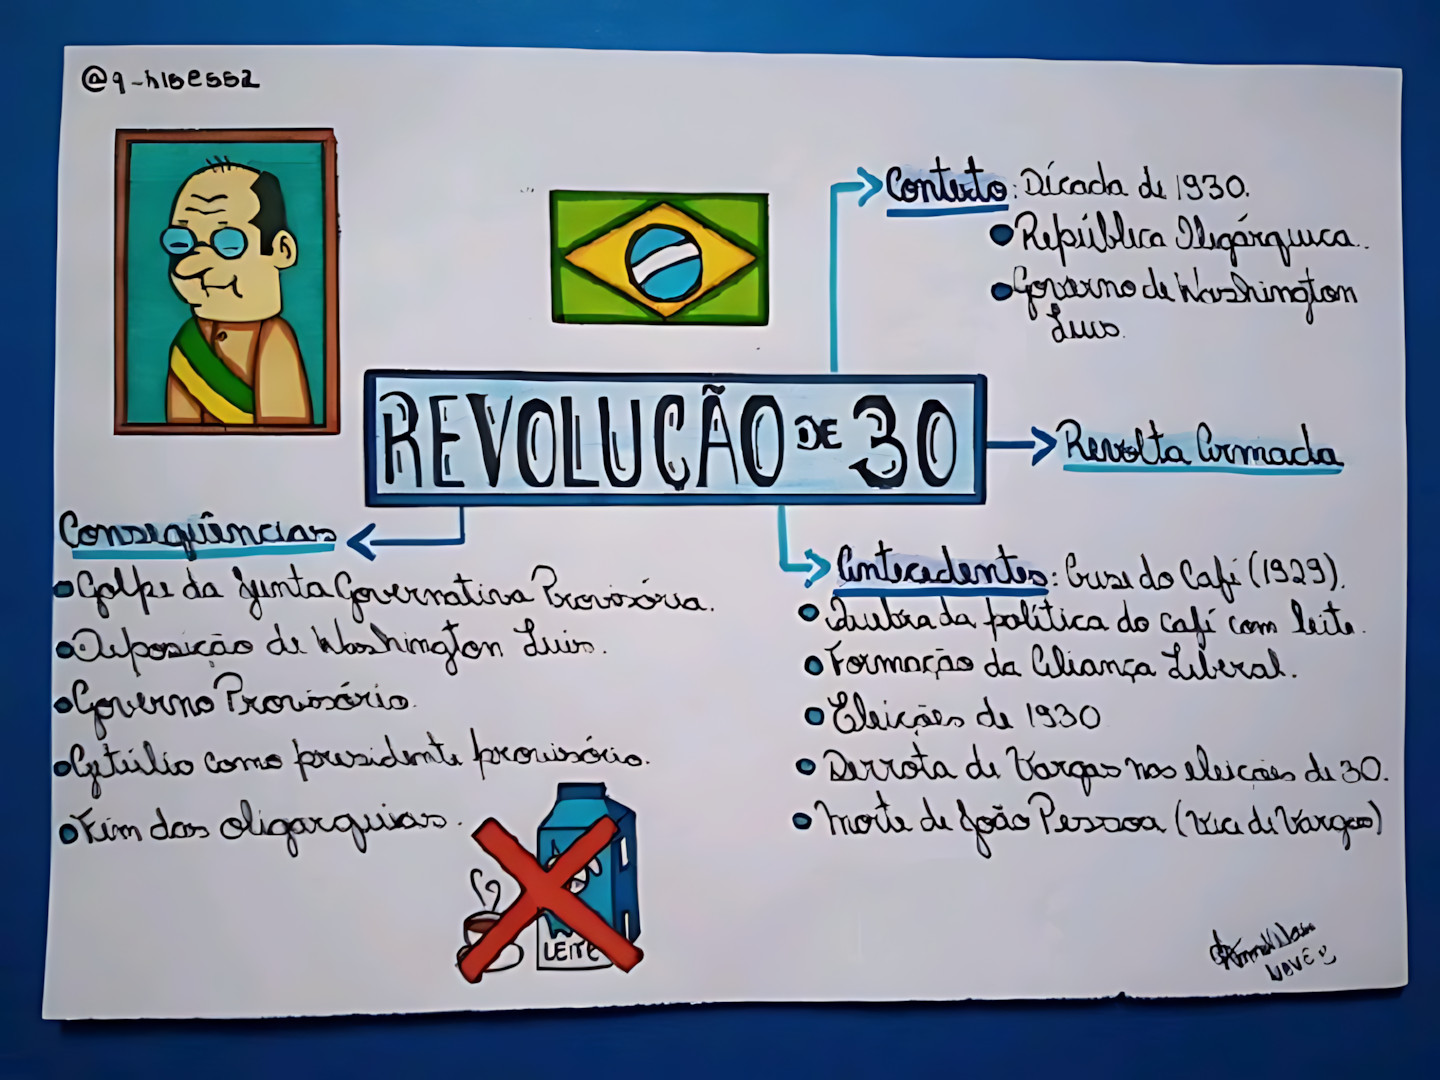 REVOLUÇÃO DE 30
Contexto: Década de 1930.
República Oligárquica.
Governo de Washington
Luis.
Revolta Armada
Antecedentes: Crise do Café (1929).
Quebra da política do café com leite.
Formação da Aliança Liberal.
Eleições de 1930
Derrota de Vargas nas eleições de 30.
Morte de João Pessoa (Vice de Vargas)
Conseqüências
Golpe da Junta Governativa Provisória.
Deposição de Washington Luis.
Governo Provisório.
Getúlio como presidente provisório.
Fim das oligarquias.
LEITE